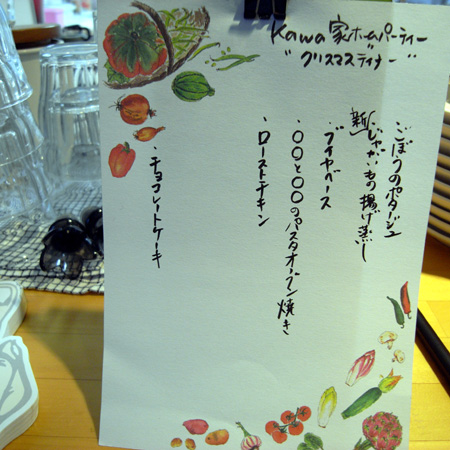 Kawa家ホームパーティー
"クリスマスディナー"
・ごぼうのポタージュ
・新じゃがいもの揚げ蒸し
・ブイヤベース
・〇〇と〇〇のパスタオーブン焼き
・ローストチキン
・チョコレートケーキ